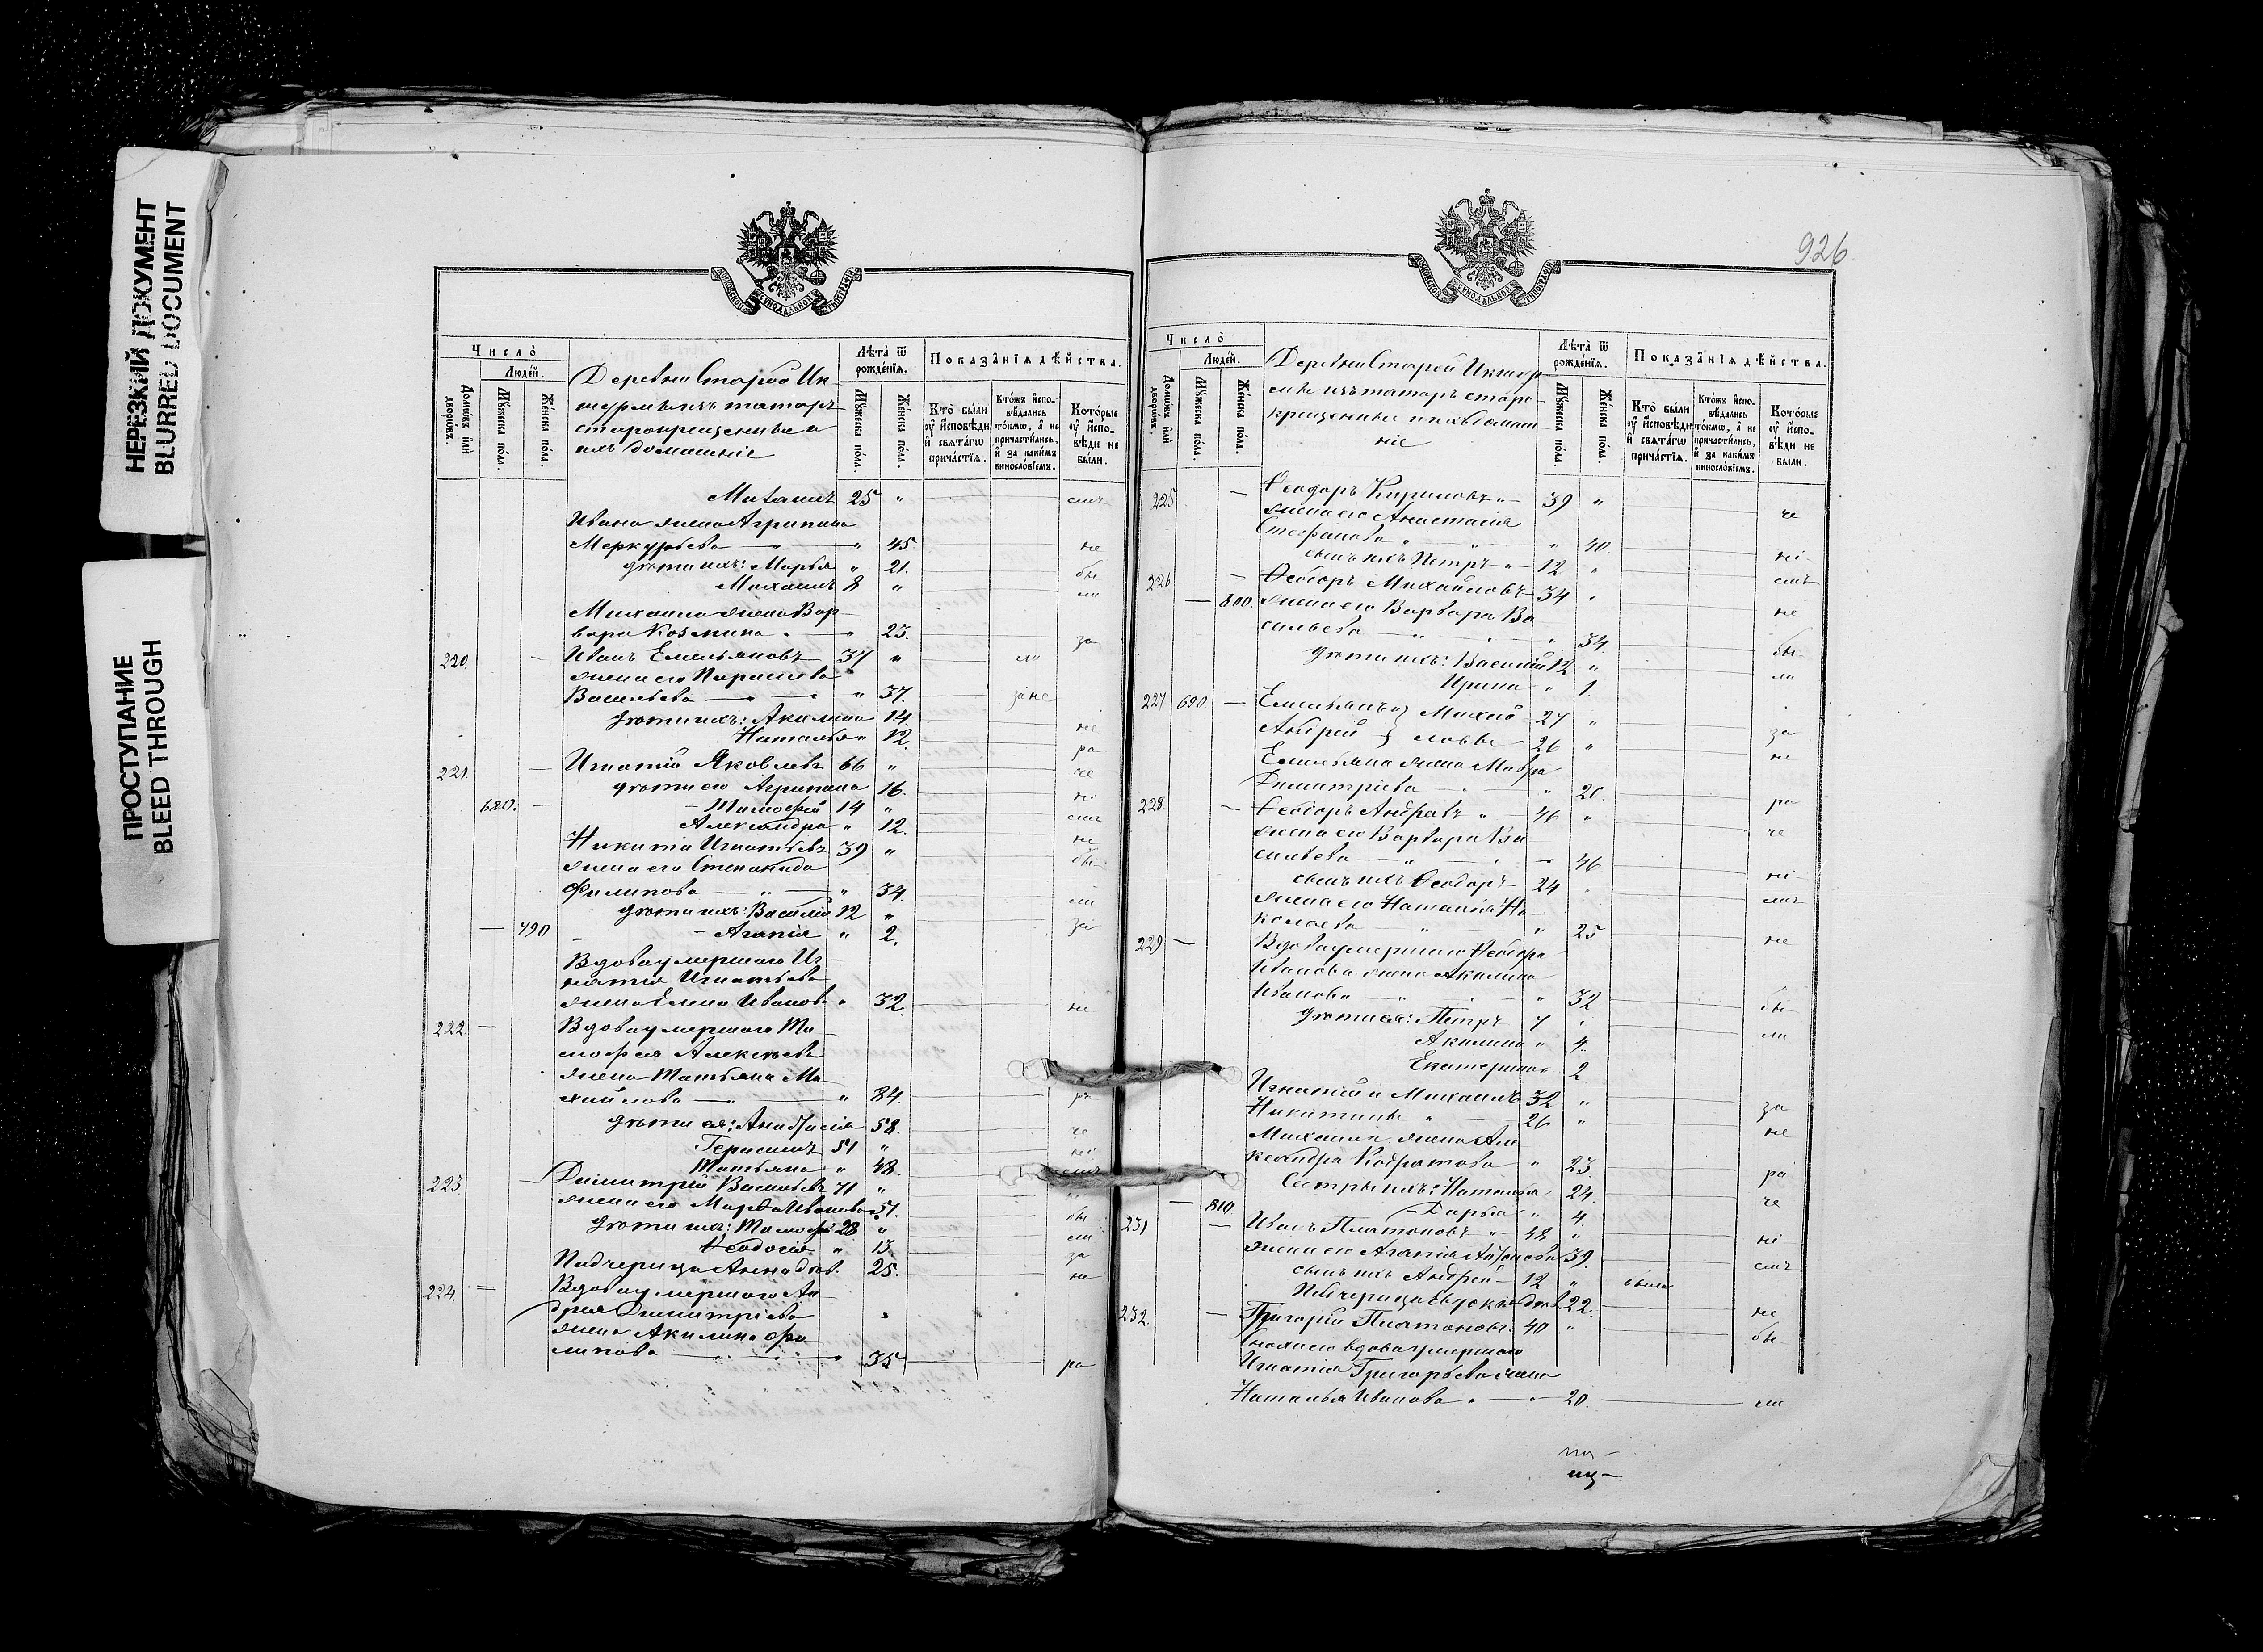 НЕРЕЗКИЙ ДОКУМЕНТ
BLURRED DOCUMENT
ПРОСТУПАНИЕ
BLEED THROUGH
Число̀
Людей.
Домѡвъ или дворѡвъ.
Мужеска пола.
Женска пола.
Деревни Старой Ик
шурмы изъ татаръ
старокрещенные и
ихъ домашніе
Лѣта ѿ рожденїѧ.
Мужеска пола.
Женска пола.
Показанїѧ дѣйства.
Кто были оу исповѣди и свѧтагѡ причастїѧ.
Ктожъ исповѣдались токмѡ, а не причастились, и за какимъ винословїемъ.
Которые оу исповѣди не были.
Михаилъ 25 "
Ивана жена Агрипина
Меркурьева — " 45. не
дѣти ихъ: Марья " 21. бы
Михаилъ 8 " ли
Михаила жена Вар
вара Козмина " 23. за
220. — Иванъ Емельяновъ 37 "
жена его Параскева
Васильева — " 37.
дѣти ихъ: Акилина 14. не
Наталья " 12. ра
221. — Игнатій Яковлевъ 66 " че
дѣти его Агрипина 16.
680. — Тимофей 14 "
Александра " 12. не
Никита Игнатьевъ 39 " бы
жена его Степанида
Филипова — " — " 34. ли
дѣти ихъ: Василій 12 " за
— 790 — Агапія " 2.
Вдова умершаго Иг
натія Игнатьева
жена Елена Иванов " 32. не
222. — Вдова умершаго Ти
мофея Алексѣева
жена Татьяна Ми
хайлова — " 84. ра
дѣти ея: Анастасія 58. че
Герасимъ 51 "
Татьяна " 48.
223. — Димитрій Васильевъ 71 "
жена его Марфа Иванова 51. бы
дѣти ихъ: Тимофей 28 " ли
Ѳеодосія " 13. за
Падчерица Анна дѣв. 25. не
224. = Вдова умершаго Ан
дрея Димитріева
жена Акилина Фи
липова — 35 ра
926
Число̀
Людей.
Домѡвъ или дворѡвъ.
Мужеска пола.
Женска пола.
Деревни Старой Икшур
мы изъ татаръ старо
крещенные и ихъ домаш
ніе
Лѣта ѿ рожденїѧ.
Мужеска пола.
Женска пола.
Показанїѧ дѣйства.
Кто были оу исповѣди и свѧтагѡ причастїѧ.
Ктожъ исповѣдались токмѡ, а не причастились, и за какимъ винословїемъ.
Которые оу исповѣди не были.
225. — Ѳеодоръ Кириловъ " — 39 " че
жена его Анастасія
Стефанова " 40.
сынъ ихъ Петръ — " — 12 "
226 — Ѳеодоръ Михайловъ 34 " не
— 800. жена его Варвара Ва
сильева — " 34. бы
дѣти ихъ: Василій 12 " ли
Ирина " 1.
227 690. — Емельянъ и Михай 27 " за
Андрей ловы 26 " не
Емельяна жена Мавра
Димитріева " 20. ра
228. — Ѳеодоръ Андреевъ " — 46 " че
жена его Варвара Ва
сильева — " 46
сынъ ихъ Ѳеодоръ 24
жена его Наталья Ни
колаева " 25 не
229 — Вдова умершаго Ѳеодора
Иванова жена Акилина
Иванова — " 32 бы
дѣти ея: Петръ 7 " ли
Акилина " 4.
Екатерина 2
Игнатій и Михаилъ 32 " за
Никитины " 26 " не
Михаила жена Але
ксандра Кодратова " 23. ра
Сестры ихъ: Наталья 24. че
— 810 Дарья " 4.
231 — Иванъ Платоновъ " 48 "
жена его Агапія 39.
сынъ ихъ Андрей — 12 "
Падчерица дѣв. 22. не
232. — Григорій Платоновъ. 40 " бы
Сноха его вдова умершаго
Игнатія Григорьева жена
Наталья Иванова " — " 20. ли